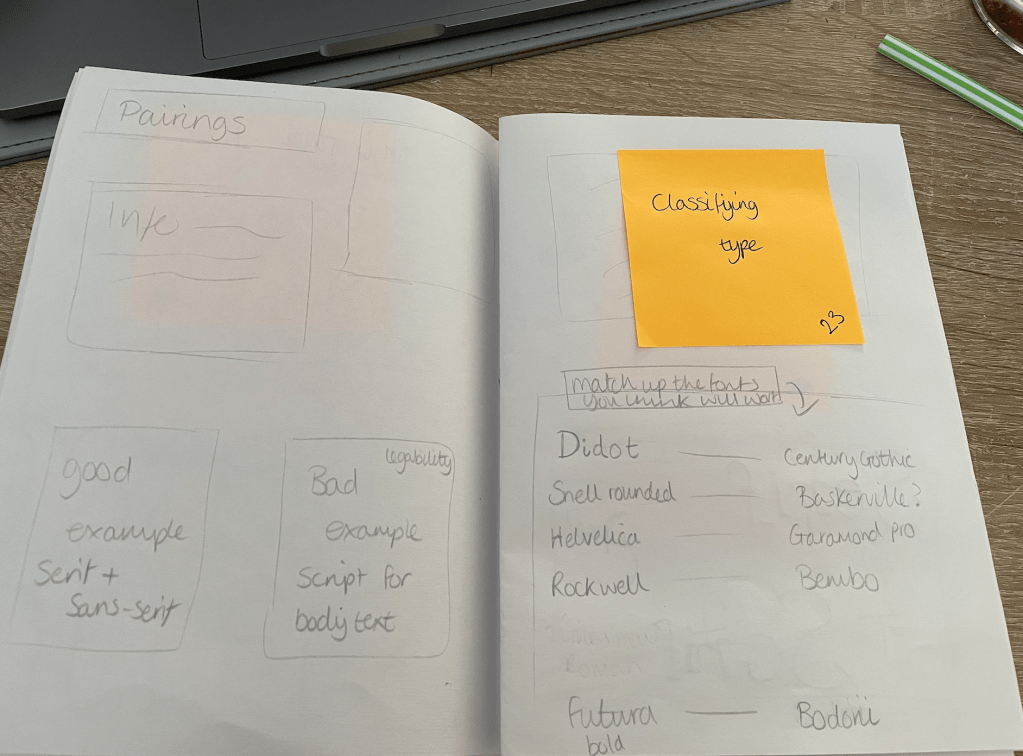 Pairings
Info
good
example
Serif +
Sans-serif
legability
Bad
example
Script for
body text
Classifying
type
23
match up the fonts
you think will work
Didot Century Gothic
Snell rounded Baskerville?
Helvelica Garamond pro
Rockwell Bembo
Futura Bodoni
bold